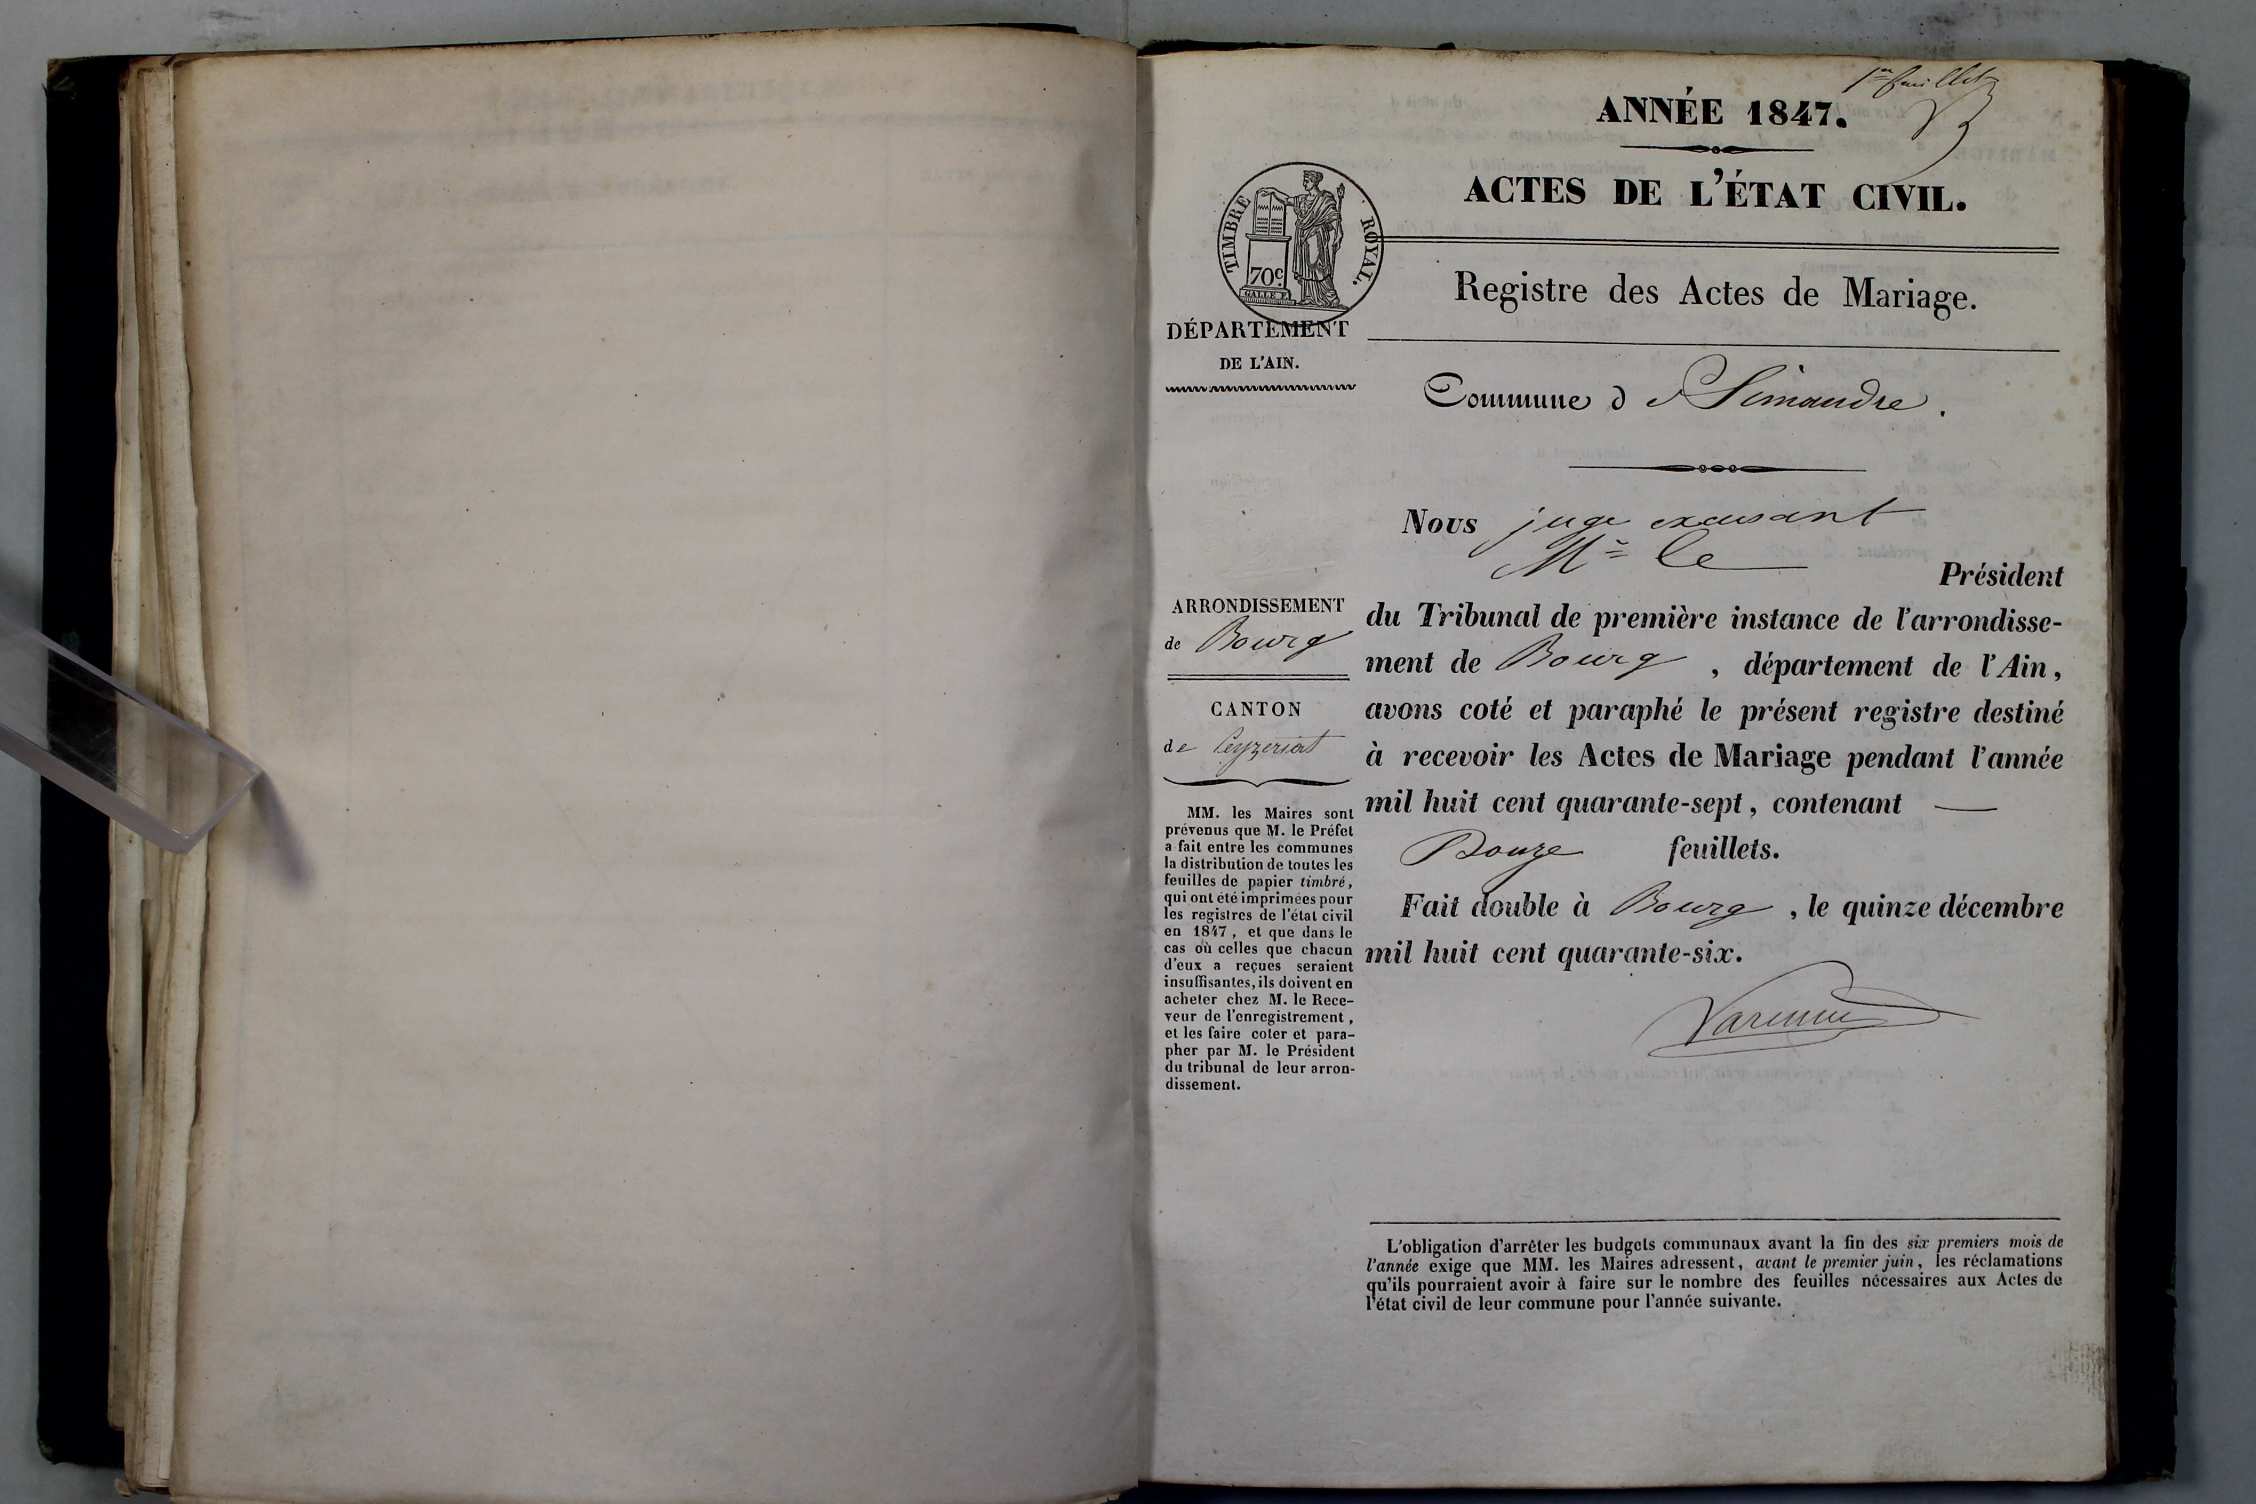 1er feuillet
ANNÉE 1847.
ACTES DE L'ÉTAT CIVIL.
TIMBRE ROYAL.
70c
GALLE F.
Registre des Actes de Mariage.
DÉPARTEMENT
DE L'AIN.
Commune d Simandre.
Nous juge excusant
Mr le
Président
du Tribunal de première instance de l'arrondisse-
ment de Bourg, département de l'Ain,
avons coté et paraphé le présent registre destiné
à recevoir les Actes de Mariage pendant l'année
mil huit cent quarante-sept, contenant —
Douze feuillets.
Fait double à Bourg, le quinze décembre
mil huit cent quarante-six.
ARRONDISSEMENT
de Bourg
CANTON
de Ceyzeriat
MM. les Maires sont
prévenus que M. le Préfet
a fait entre les communes
la distribution de toutes les
feuilles de papier timbré,
qui ont été imprimées pour
les registres de l'état civil
en 1847, et que dans le
cas où celles que chacun
d'eux a reçues seraient
insuffisantes, ils doivent en
acheter chez M. le Rece-
veur de l'enregistrement,
et les faire coter et para-
pher par M. le Président
du tribunal de leur arron-
dissement.
L'obligation d'arrêter les budgets communaux avant la fin des six premiers mois de
l'année exige que MM. les Maires adressent, avant le premier juin, les réclamations
qu'ils pourraient avoir à faire sur le nombre des feuilles nécessaires aux Actes de
l'état civil de leur commune pour l'année suivante.